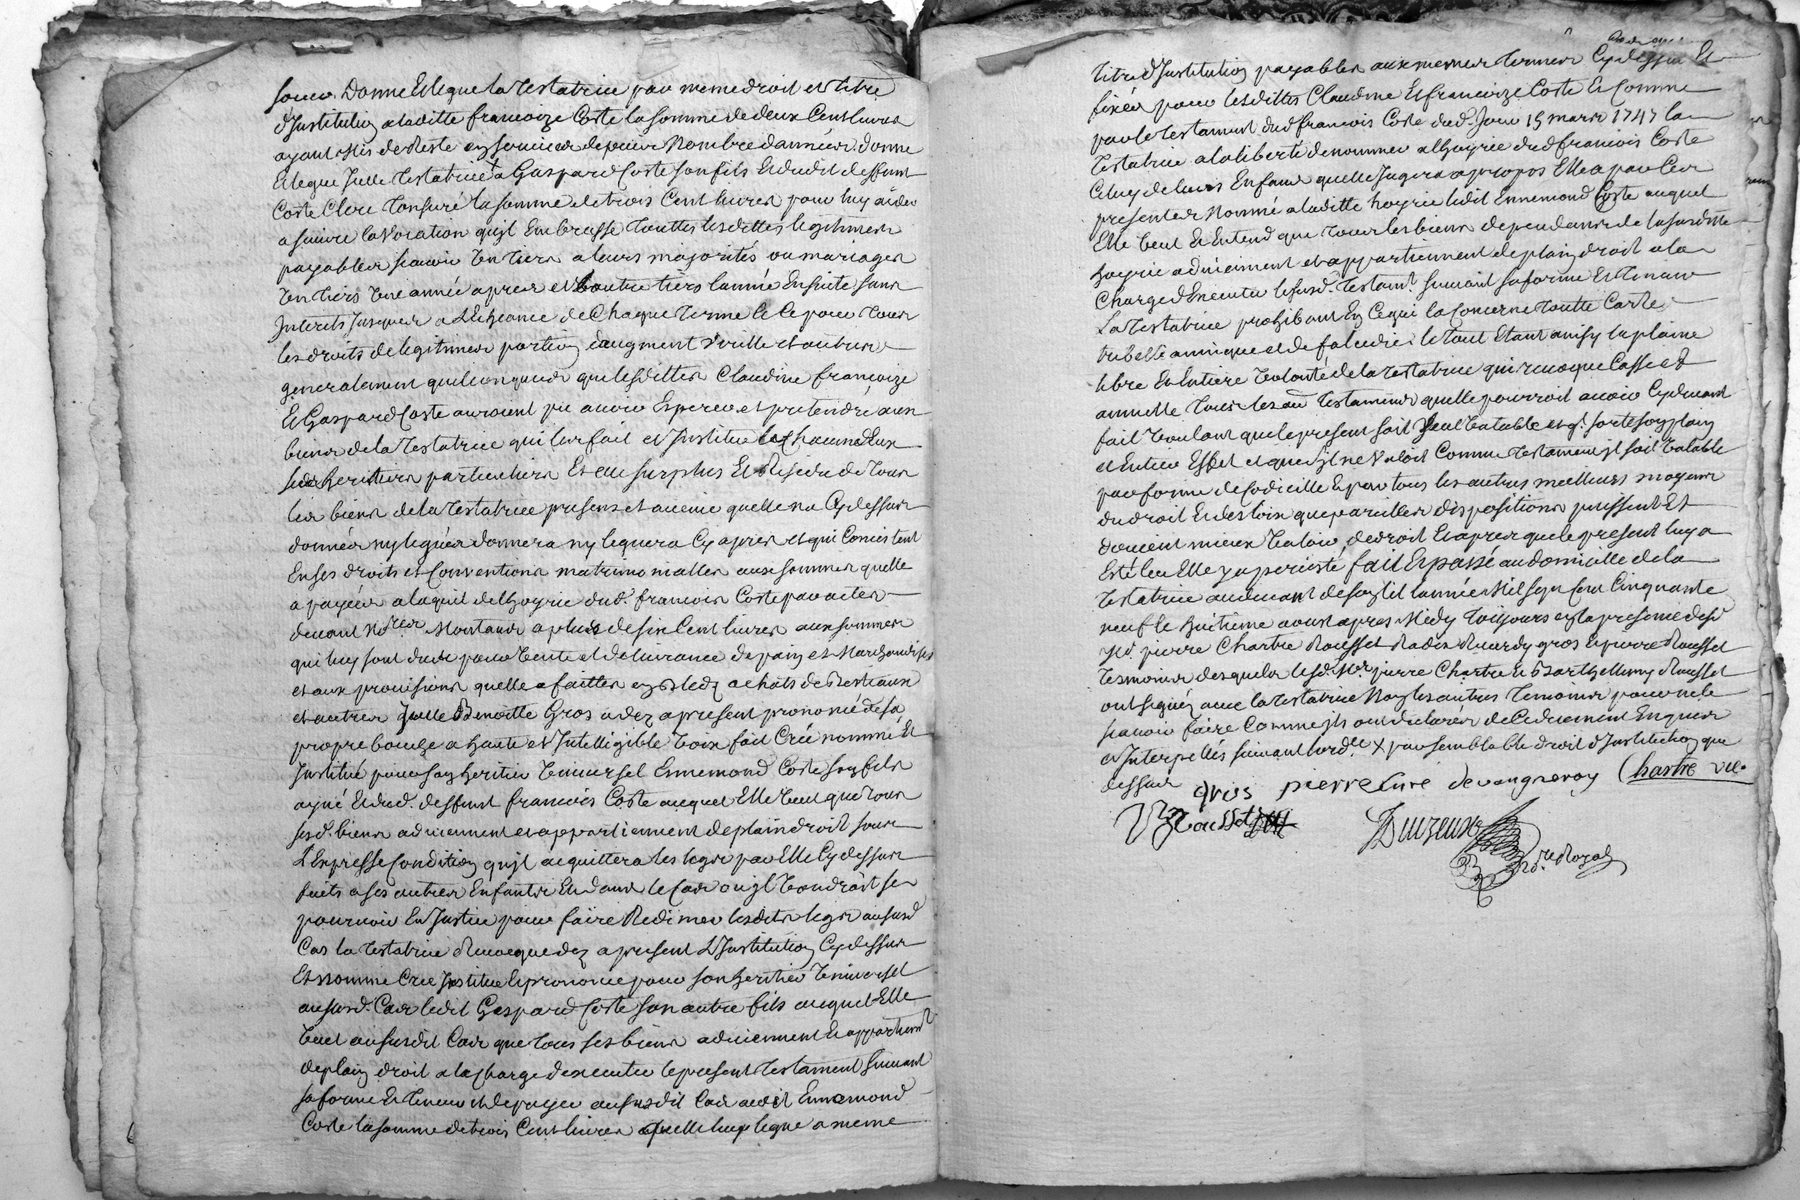 jours. Donne Et legue la Testatrice par meme droit et titre
d'Institution a laditte francoize Coste la somme de deux Cent livres
ayant de Reste nombre d'années. donne
Et legue Icelle Testatrice a Gaspard Coste son fils Et dudit deffunt
Coste Clerc tonsuré la somme de trois Cent livres pour luy aider
a suivre la Vocation qu'jl Embrasse touttes lesdittes legitimes
payables scavoir Un tiers a leurs majorités ou mariages
Un tiers Une année apres et l'autre tiers l'année Ensuite sans
Interets Jusques a L'Echeance de Chaque terme Et Ce pour tous
les droits de legitimes portion d'augment et autres
generalement quelconques que lesdittes Claudine francoize
Et Gaspard Coste auroient pu avoir Esperer et pretendre aux
biens de la Testatrice qui les fait et Justitue Chacun d'Eux
ses heritiers particuliers Et au surplus Et Residu de tous
les biens de la Testatrice presens et avenir quelle na Cydessus
donnés ny legués donnera ny leguera Cy apres et qui Consistent
En ses droits et Conventions matrimonialles aux sommes quelle
a payées a laquit de l'hoyrie dud. francois Coste par actes
devant No.res Montaud a plus de six Cent livres aux sommes
qui luy sont dues pour Vente et delivrance de pain et Marchandises
et aux provisions quelle a faittes en bled achats de Bestiaux
et autres Jcelle Benoitte Gros a dez apresent prononcé de sa
propre bouche a haute et Intelligible Voix fait Créé nommé Et
Justitué pour son heritier Universel Ennemond Coste son fils
ayné Et dud. deffunt francois Coste auquel Elle Veut que tous
sesd. biens adviennent et appartiennent de plain droit sous
L'Expresse Condition qu'jl acquittera les legs par Elle Cydessus
faits a ses autres Enfants Et dans le Cas ou jl Voudroit se
pourvoir En Justice pour faire Redimer lesdits legs aususd.
Cas la Testatrice Revocque dez apresent L'Institution Cydessus
Et nomme Crée Justitue Et prononce pour son heritier Universel
aususd. Cas ledit Gaspard Coste son autre fils auquel Elle
Veut aususdit Cas que tous ses biens adviennent Et appartiennt.
de plain droit a la Charge d'executer le present Testament suivant
sa forme Et Teneur et de payer aususdit Cas audit Ennemond
Coste la somme de trois Cent livres quelle luy legue a meme
titre d'Institution payables aux memes termes Cydessus Et
fixés pour lesdittes Claudine Et francoize Coste Et Comme
par le Testament dud francois Coste dud. Jour 15 mars 1747 la
Testatrice a la liberté de nommer a l'hoyrie dud francois Coste
Celuy de leurs Enfans quelle Jugera apropos Elle a par Ces
presentes Nommé a laditte hoyrie ledit Ennemond Coste auquel
Elle Veut Et Entend que tous les biens dependants de la susditte
hoyrie adviennent et appartiennent de plain droit a la
Charge d'Executer lesusd. Testamt. suivant sa forme Et teneur
La Testatrice prohibant En Ce qui la Concerne toutte Carte
tribellianique et de falcidie : le tout Etant ainsy la plaine
libre Et Entiere Volonté de la Testatrice qui revoque Casse et
annulle tous les autres Testamens quelle pourroit avoir Cydevant
fait Voulant que le present soit seul Valable et q. sorte son plain
et Entier Effet et que s'jl ne Valoit Comme Testament jl soit Valable
par forme de Codicille Et par tous les autres meilleurs moyens
du droit Et des loix que pareilles dispositions puissent Et
doivent mieux Valoir de droit Et apres que le present luy a
Esté leu Elle y a persisté fait Et passé au domicille de la
Testatrice audevant de son lit l'année Mil sept Cent Cinquante
neuf le huitieme aoust apres Midy toujours en la presence desd
Srs. pierre Chartre Rousset gros Et pierre Rousset
Tesmoins desquels lesd. Mre. pierre Chartre Et Barthellemy Rousset
ont signés avec la Testatrice Non les autres Temoins pour ne le
scavoir faire Comme jls ont declarés de Ce duement Enquis
et Interpellés suivant l'ord.ce X par semblable droit d'Institution que
dessus gros pierre Curé de vaugneray Chartre vic.
Rousset Duizeux
No.re Royal